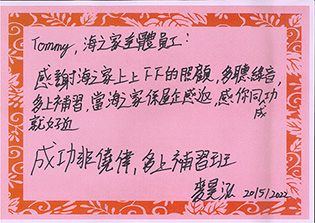 Tommy, 海之家全體員工：
感謝海之家上上下下的照顧，多聽錄音，
多上補習，當海之家係屋企感返，感作同功成
就好近
成功非僥倖，多上補習班
20/5/2022